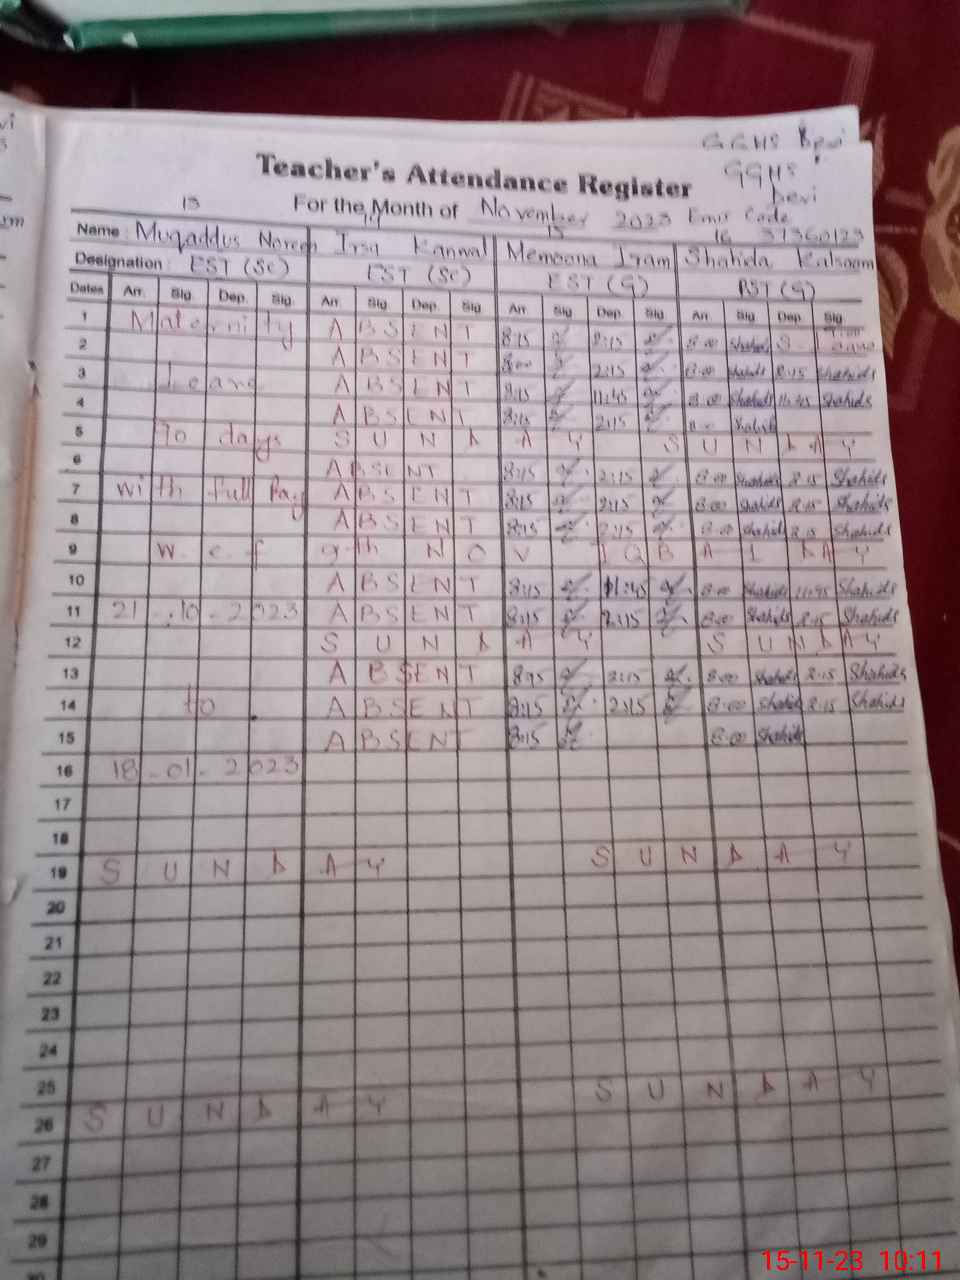 GGHS Devi
GGHS
Devi
Teacher's Attendance Register
13 14 15 16
For the Month of November 2023 Emis Code 37360123
Name: Muqaddus Noreen Irsa Kanwal Memoona Iram Shahida Kalsoom
Designation: EST (Sc) EST (Sc) EST (G) PST (G)
Dates Arr. Sig. Dep. Sig. Arr. Sig Dep. Sig Arr Sig Dep. Sig Arr. Sig Dep. Sig.
1 Maternity ABSENT 8:15 2:15 8:00 Shahids
2 ABSENT 8:00 2:15 8:00 Shahids 2:15 Shahids
3 Leave ABSENT 8:15 11:45 8:00 Shahids 11:45 Shahids
4 ABSENT 8:15 2:15 8:00 Shahids
5 90 days SUNDAY SUNDAY
6 ABSENT 8:15 2:15 8:00 Shahids 2:15 Shahids
7 with full Pay ABSENT 8:15 2:15 8:00 Shahids 2:15 Shahids
8 ABSENT 8:15 2:15 8:00 Shahids 2:15 Shahids
9 w.e.f 9th NOV IQBAL DAY
10 ABSENT 8:15 11:45 8:00 Shahids 11:45 Shahids
11 21.10-2023 ABSENT 8:15 2:15 8:00 Shahids 2:15 Shahids
12 SUNDAY SUNDAY
13 ABSENT 8:15 2:15 8:00 Shahids 2:15 Shahids
14 to ABSENT 8:15 2:15 8:00 Shahids 2:15 Shahids
15 ABSENT 8:15 8:00 Shahids
16 18-01-2023
17
18
19 SUNDAY SUNDAY
20
21
22
23
24
25 SUNDAY
26 SUNDAY
27
28
29
30
15-11-23 10:11